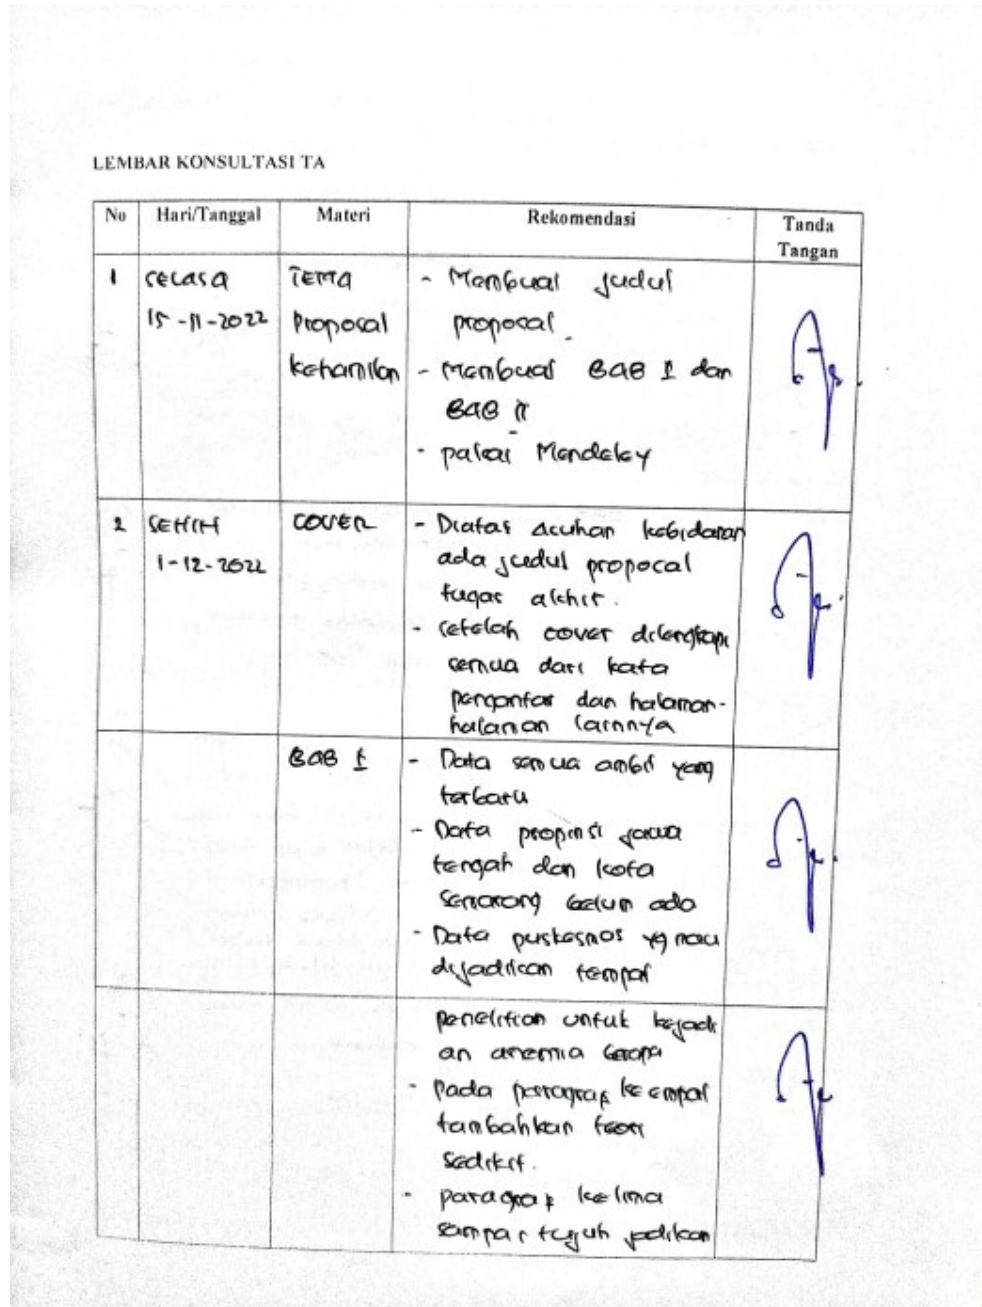 LEMBAR KONSULTASI TA
No Hari/Tanggal Materi Rekomendasi Tanda
Tangan
1 SELASA TEMA - Membuat judul
15-11-2022 Proposal proposal
kehamilan - Membuat BAB I dan
BAB II
- pakai Mendeley
2 SENIN COVER - Diatas acuhan kebidanan
1-12-2022 ada judul proposal
tugas akhir.
- setelah cover dilengkapi
semua dari kata
pengantar dan halaman-
halaman lainnya
BAB I - Data semua ambil yang
terbaru
- Data propinsi jawa
tengah dan kota
Semarang belum ada
- Data puskesmas yg mau
dijadikan tempat
penelitian untuk kejadi
an anemia berapa
- pada paragraf ke empat
tambahkan teori
sedikit.
- paragraf kelima
sampai tujuh jadikan